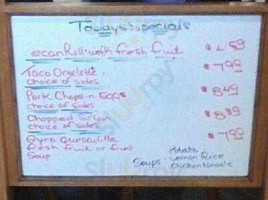 Today's Specials
Pecan Roll with fresh fruit $4.59
Taco Omelette $7.99
choice of sides
Pork Chops-n-Eggs $8.49
choice of sides
Chopped Sirloin $8.89
choice of sides
Gyro Quesadilla $7.99
fresh fruit or fries
Soup
Soups: Potato
Lemon Rice
Chicken Noodle